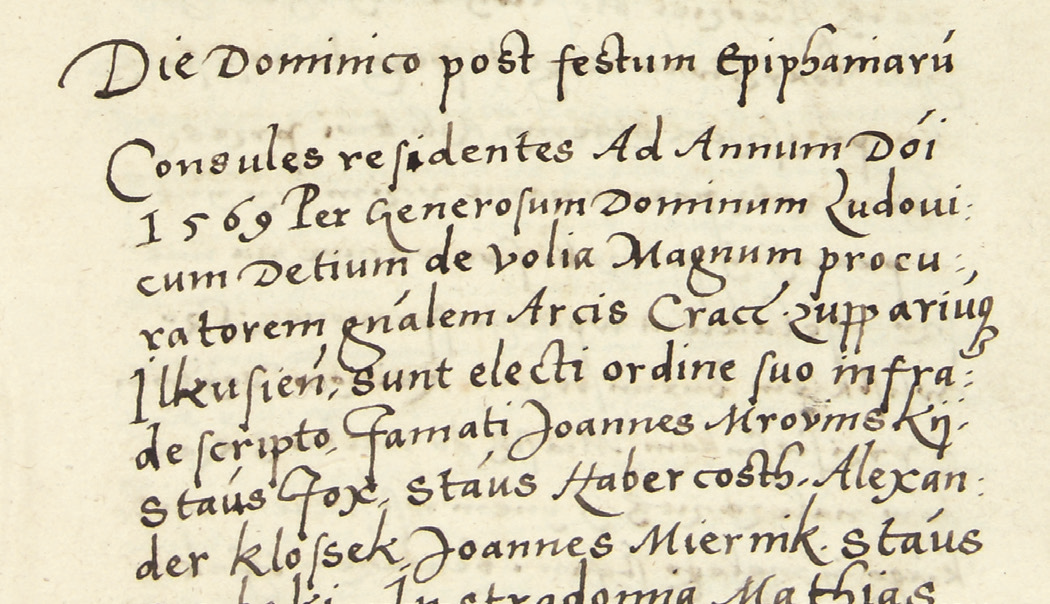 Die Dominico post festum Epiphaniarū
Consules residentes Ad Annum Dōi
1569 Per Generosum Dominum Ludoui:
cum Detium de volia Magnum procu:,
ratorem gnālem Arcis Cracc̄. zuppariūq
Ilkusien̄, sunt electi ordine suo infra:
descripto. Famati Joannes Mrovinskij.
Stāus Fox, Stāus Habercosth. Alexan:
der klossek, Joannes Miernik. Stāus
In stradomia Mathias